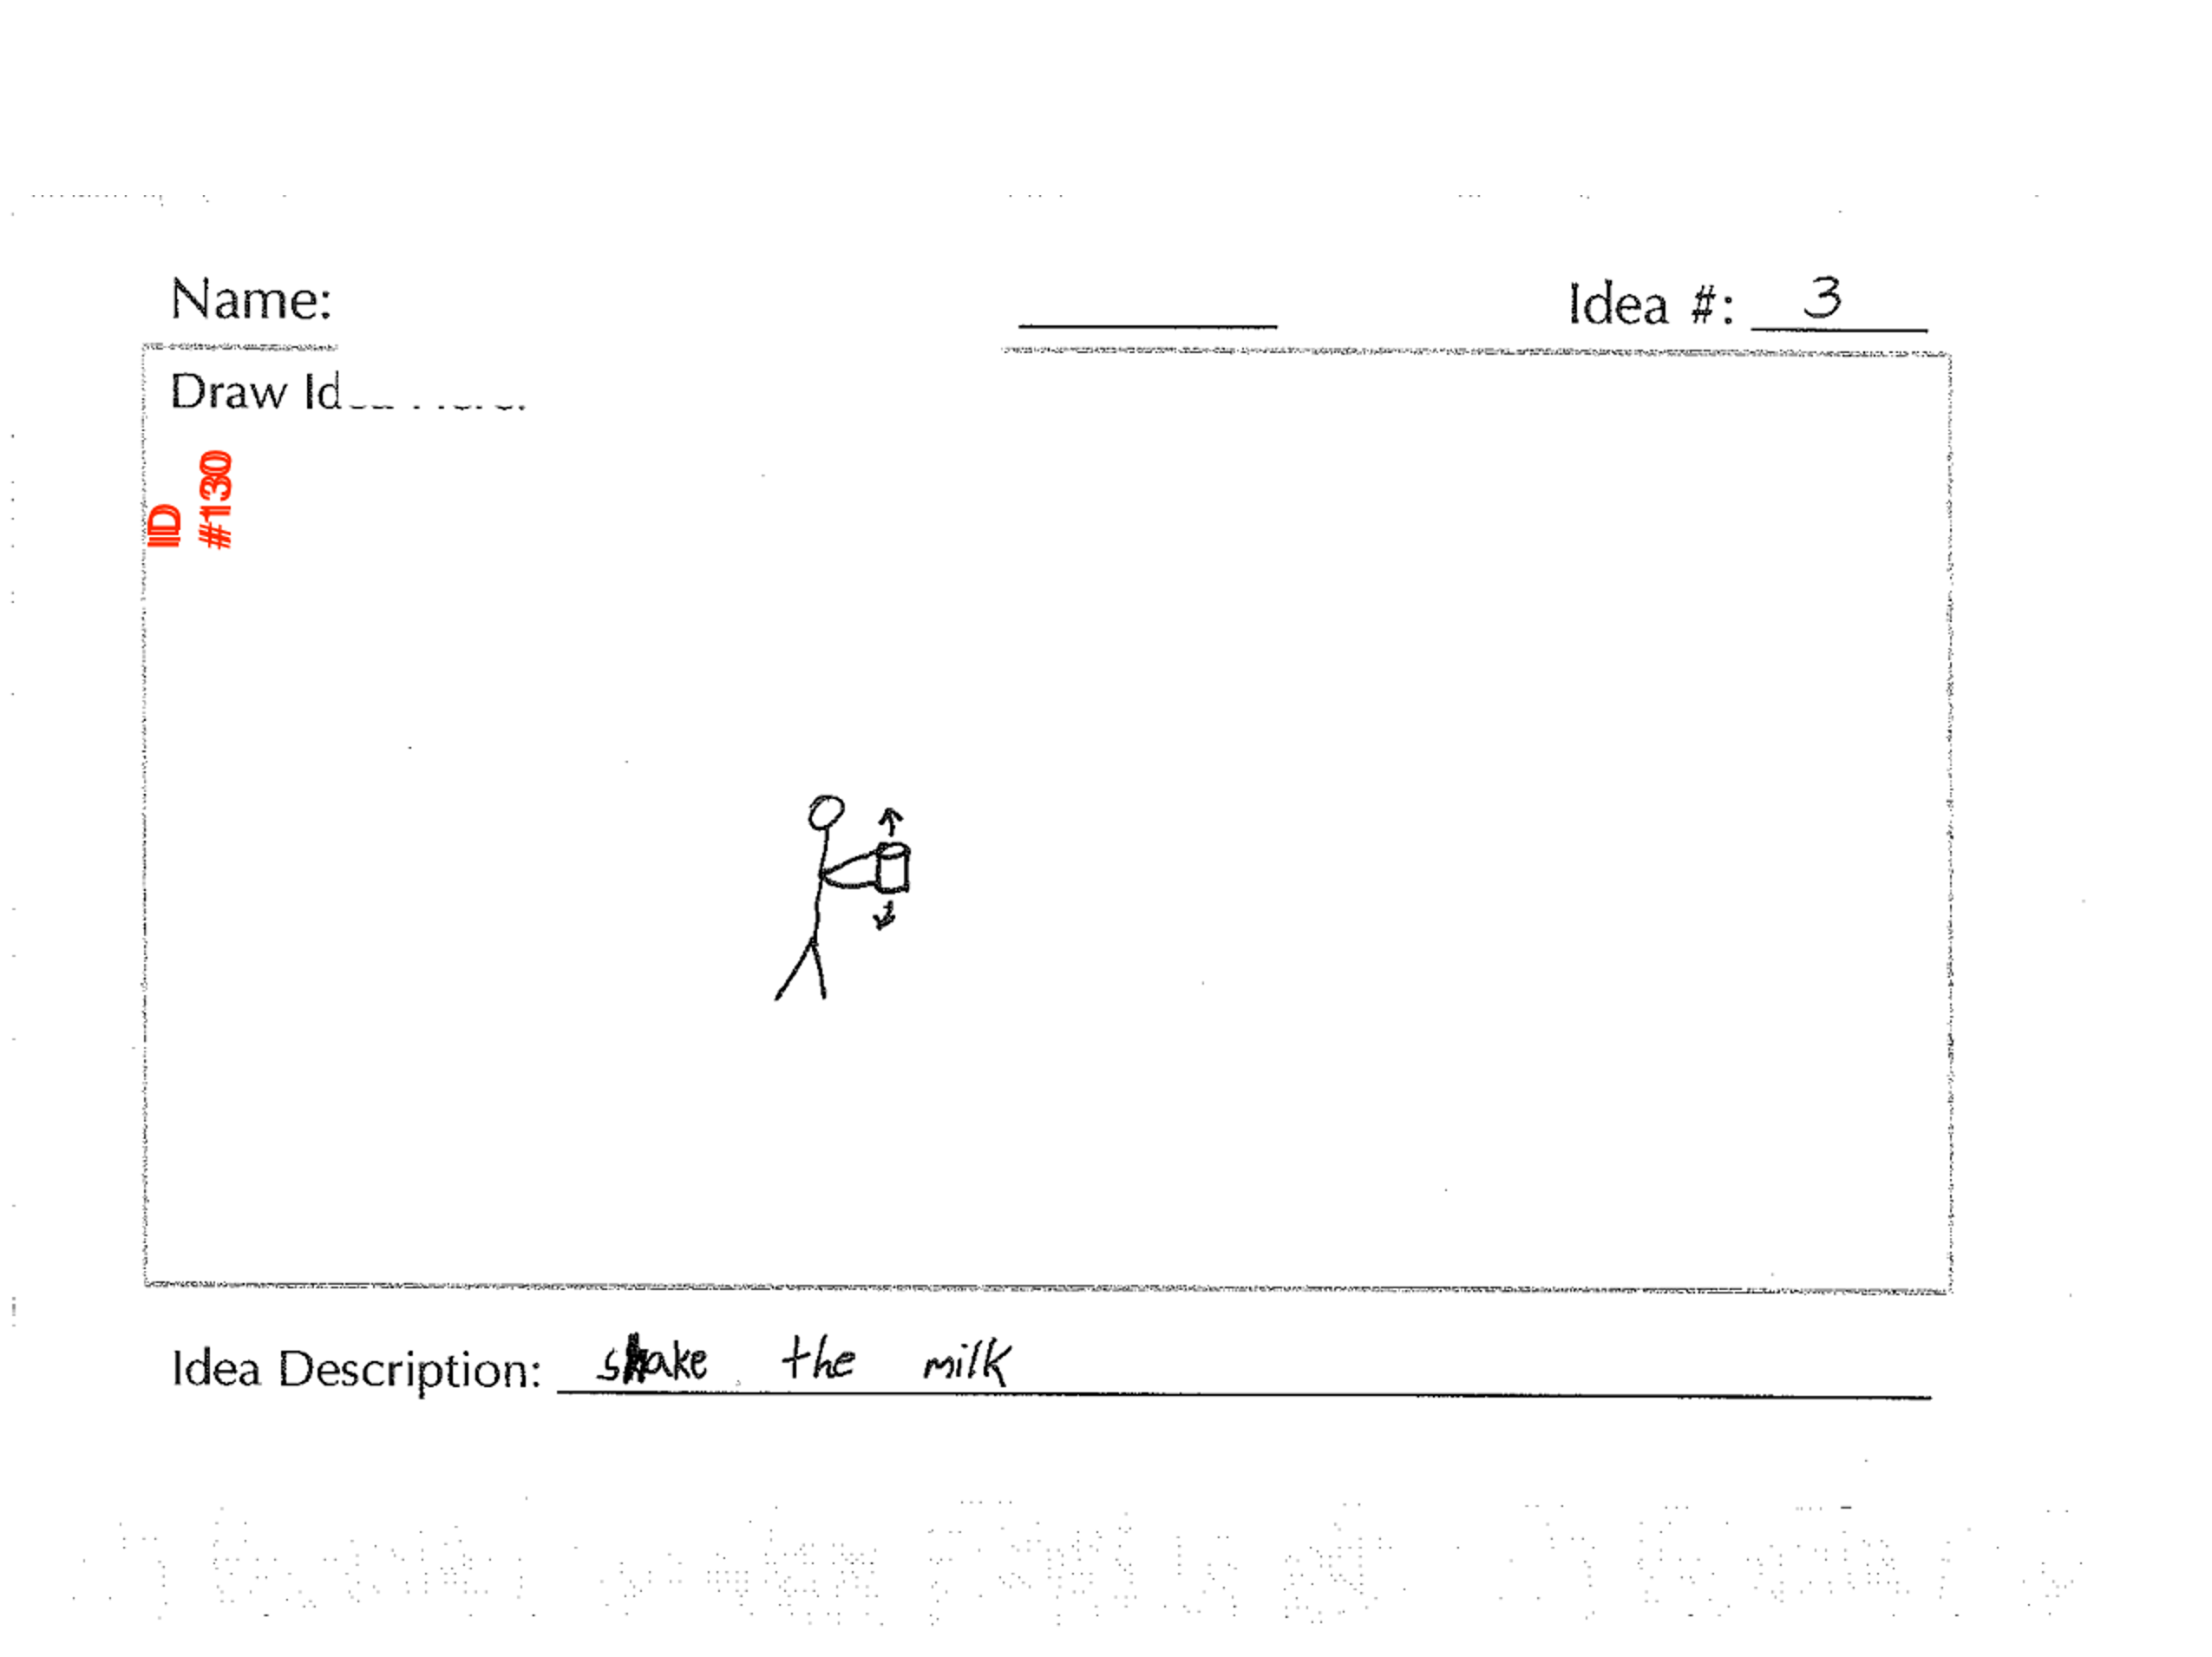 Name:
Idea #: 3
Draw Id
ID
#130
Idea Description: shake the milk